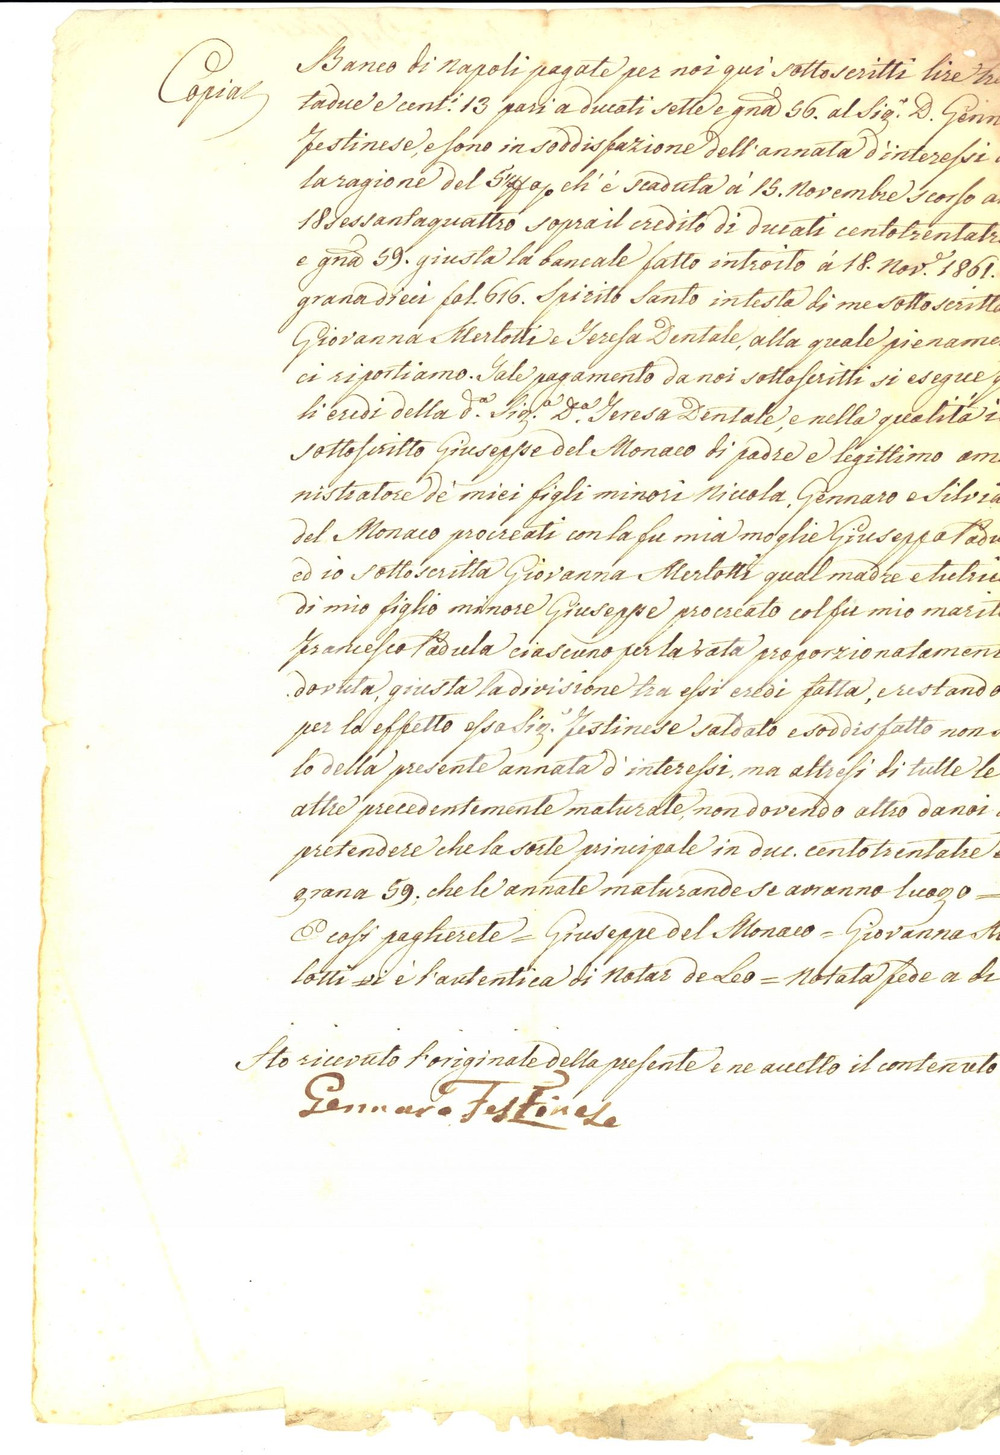 Copia
Banco di Napoli pagate per noi qui sottoscritti lire tre
tadue e cent.i 13 pari a ducati sette e gna 56. al Sig.r D. Genn
Festinese, e sono in soddisfazione dell'annata d'interessi
la ragione del ch'è scaduta à 15. Novembre scorso a
18sessantaquattro sopra il credito di ducati centotrentatr
e gna 59. giusta la bancale fatto introito à 18. Nov.e 1861.
grana dieci fol. 616. Spirito Santo in testa di me sottoscritta
Giovanna Merlotti e Teresa Dentale, alla quale pienamen
ci riportiamo. Tale pagamento da noi sottoscritti si esegue q
li eredi della d.a Sig.a D.a Teresa Dentale, e nella qualità i
sottoscritto Giuseppe del Monaco di padre e legittimo am
nistratore de' miei figli minori Niccola, Gennaro e Silvia
del Monaco procreati con la fu mia moglie Giuseppa Padu
ed io sottoscritta Giovanna Merlotti qual madre e tutric
di mio figlio minore Giuseppe procreato col fu mio marito
Francesco Padula ciascuno per la rata proporzionatament
dovuta, giusta la divisione tra essi eredi fatta, e restando
per lo effetto esso Sig.r Festinese saldato e soddisfatto non s
lo della presente annata d'interessi, ma altresi di tutte le
altre precedentemente maturate, non dovendo altro da noi
pretendere che la sorte principale in duc. centotrentatre e
grana 59, che le annate maturande se avranno luogo =
E cosi pagherete = Giuseppe del Monaco = Giovanna Me
lotti = Vi è l'autentica di Notar de Leo = Notata fede a di
Ho ricevuto l'originale della presente e ne accetto il contenuto
Gennaro Festinese